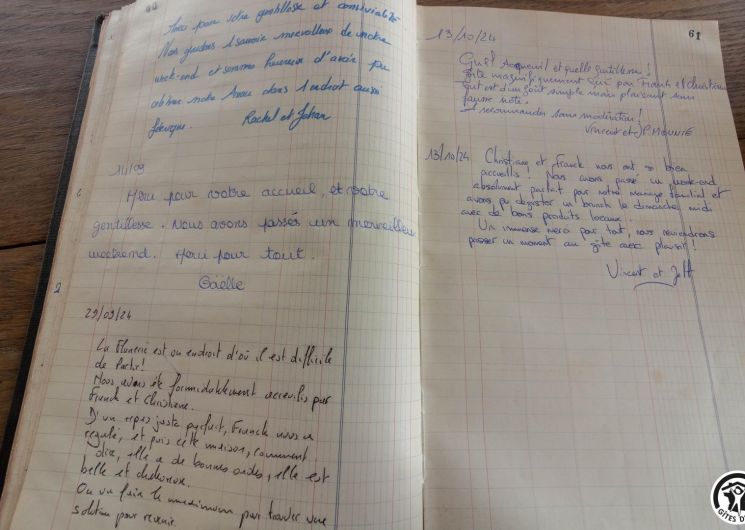 60
Merci pour votre gentillesse et convivialité
Nous gardons 1 souvenir merveilleux de notre
week-end et sommes heureux d'avoir pu
célébrer notre Amour dans 1 endroit aussi
féerique. Rachel et Johan
14/09
Merci pour votre accueil, et votre
gentillesse. Nous avons passés un merveilleux
weekend. Merci pour tout.
Gaëlle
29/09/24
La Flânerie est un endroit d'où il est difficile
de Partir!
Nous avons été formidablement accueillis par
Franck et Christiane.
D'un repas juste parfait, Franck nous a
régalé, et puis cette maison, comment
dire, elle a de bonnes ondes, elle est
belle et chaleureuse.
On va faire le maximum pour trouver une
solution pour revenir.
61
13/10/24
Quel Accueil et quelle gentillesse!
Gîte magnifiquement par Franck et Christiane
tout est d'un goût simple mais plaisant sans
fausse note.
A recommander sans modération!
Vincent et JP MOUNIE
13/10/24 Christiane et Franck nous ont si bien
accueillis! Nous avons passé un week-end
absolument parfait pour notre mariage familial et
avons pu déguster un brunch le dimanche midi
avec de bons produits locaux.
Un immense merci pour tout, nous reviendrons
passer un moment au gîte avec plaisir!
Vincent et Jeff
GÎTES D